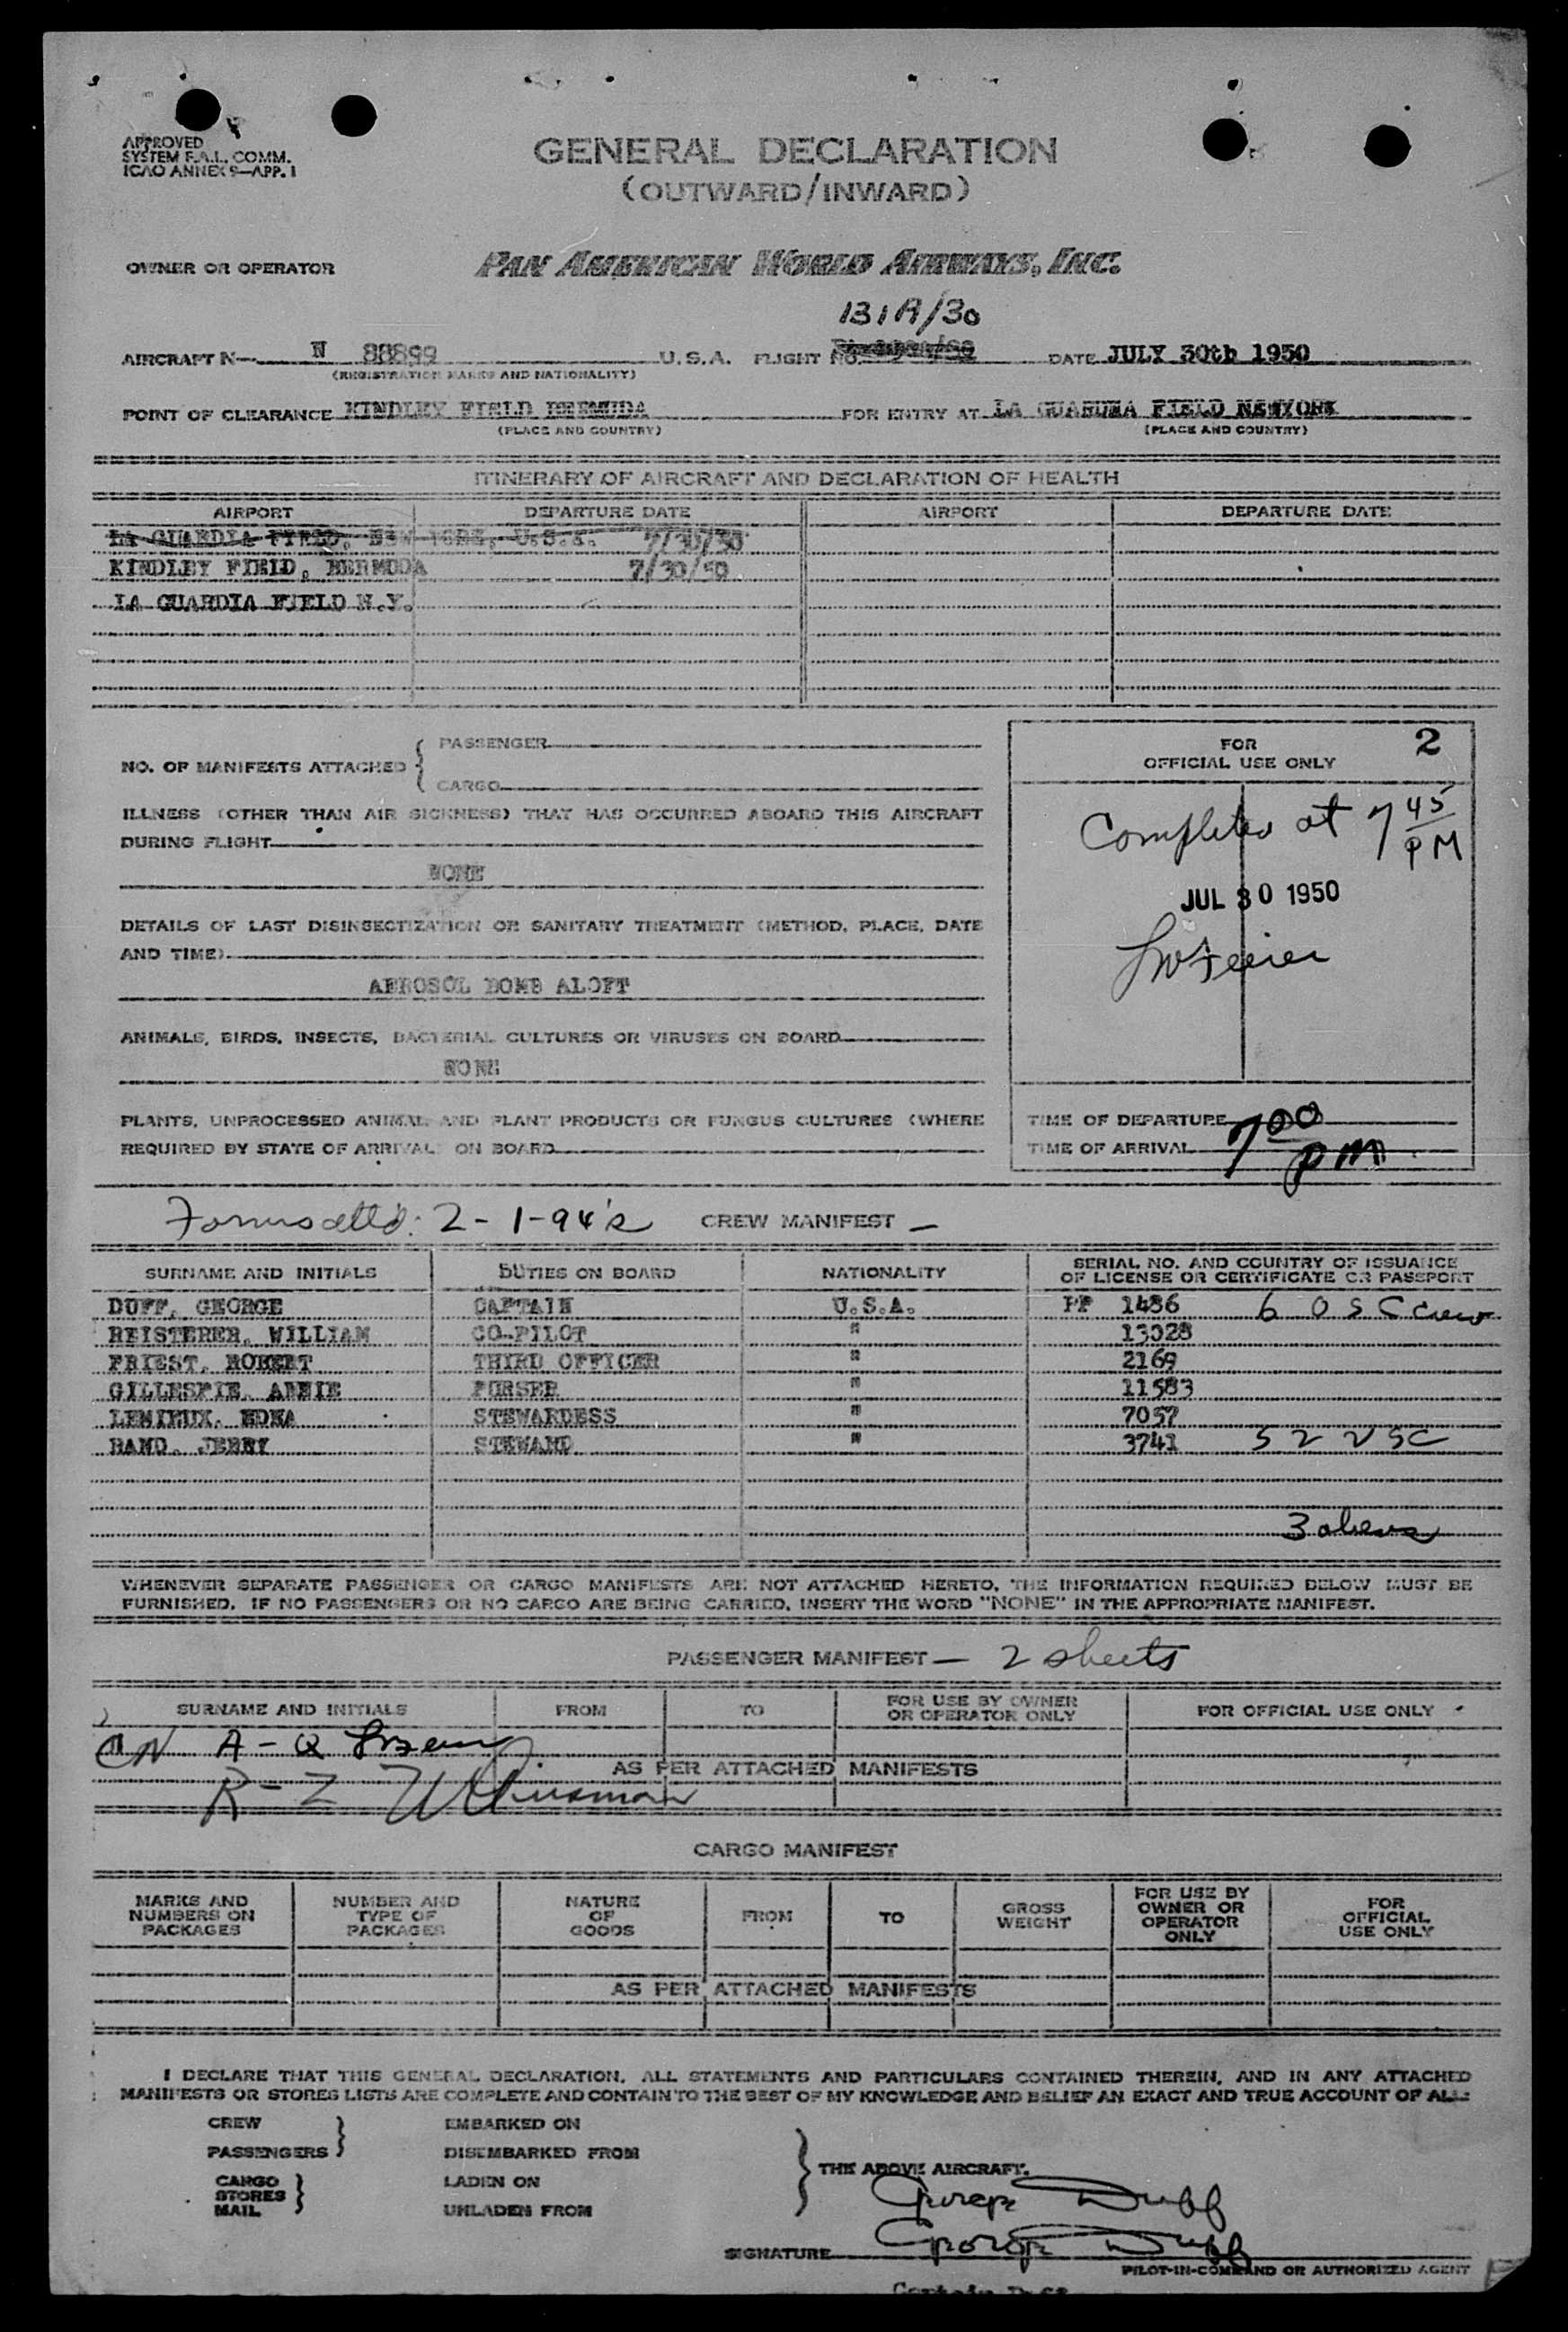 APPROVED
SYSTEM F.A.L. COMM.
ICAO ANNEX 9—APP. 1
GENERAL DECLARATION
(OUTWARD/INWARD)
OWNER OR OPERATOR PAN AMERICAN WORLD AIRWAYS, INC.
131A/30
AIRCRAFT N— N 88899 U.S.A. FLIGHT NO. DATE JULY 30th 1950
(REGISTRATION MARKS AND NATIONALITY)
POINT OF CLEARANCE KINDLEY FIELD BERMUDA FOR ENTRY AT LA GUARDIA FIELD NEWYORK
(PLACE AND COUNTRY) (PLACE AND COUNTRY)
ITINERARY OF AIRCRAFT AND DECLARATION OF HEALTH
AIRPORT DEPARTURE DATE AIRPORT DEPARTURE DATE
LA GUARDIA FIELD, NEW YORK, U.S.A. 7/30/50
KINDLEY FIELD, BERMUDA 7/30/50
LA GUARDIA FIELD N.Y.
NO. OF MANIFESTS ATTACHED { PASSENGER
CARGO
FOR OFFICIAL USE ONLY 2
ILLNESS (OTHER THAN AIR SICKNESS) THAT HAS OCCURRED ABOARD THIS AIRCRAFT
DURING FLIGHT
NONE
Completed at 7 45 PM
JUL 30 1950
DETAILS OF LAST DISINSECTIZATION OR SANITARY TREATMENT (METHOD, PLACE, DATE
AND TIME)
AEROSOL BOMB ALOFT
ANIMALS, BIRDS, INSECTS, BACTERIAL CULTURES OR VIRUSES ON BOARD
NONE
PLANTS, UNPROCESSED ANIMAL AND PLANT PRODUCTS OR FUNGUS CULTURES (WHERE
REQUIRED BY STATE OF ARRIVAL) ON BOARD
TIME OF DEPARTURE
TIME OF ARRIVAL 7 00 pm
2 - 1-94's CREW MANIFEST —
SURNAME AND INITIALS DUTIES ON BOARD NATIONALITY SERIAL NO. AND COUNTRY OF ISSUANCE
OF LICENSE OR CERTIFICATE OR PASSPORT
DUFF, GEORGE CAPTAIN U.S.A. PP 1486 6 USC Crew
REISTERER, WILLIAM CO-PILOT " 13028
PRIEST, ROBERT THIRD OFFICER " 2169
GILLESPIE, ANNIE PURSER " 11583
LEMIEUX, EDNA STEWARDESS " 7057
RAND, JERRY STEWARD " 3741 52 USC
3 aliens
WHENEVER SEPARATE PASSENGER OR CARGO MANIFESTS ARE NOT ATTACHED HERETO, THE INFORMATION REQUIRED BELOW MUST BE
FURNISHED. IF NO PASSENGERS OR NO CARGO ARE BEING CARRIED, INSERT THE WORD "NONE" IN THE APPROPRIATE MANIFEST.
PASSENGER MANIFEST — 2 sheets
SURNAME AND INITIALS FROM TO FOR USE BY OWNER OR OPERATOR ONLY FOR OFFICIAL USE ONLY
A - Q
AS PER ATTACHED MANIFESTS
R - Z
CARGO MANIFEST
MARKS AND NUMBERS ON PACKAGES NUMBER AND TYPE OF PACKAGES NATURE OF GOODS FROM TO GROSS WEIGHT FOR USE BY OWNER OR OPERATOR ONLY FOR OFFICIAL USE ONLY
AS PER ATTACHED MANIFESTS
I DECLARE THAT THIS GENERAL DECLARATION, ALL STATEMENTS AND PARTICULARS CONTAINED THEREIN, AND IN ANY ATTACHED
MANIFESTS OR STORES LISTS ARE COMPLETE AND CONTAIN TO THE BEST OF MY KNOWLEDGE AND BELIEF AN EXACT AND TRUE ACCOUNT OF ALL:
CREW EMBARKED ON
PASSENGERS DISEMBARKED FROM
THE ABOVE AIRCRAFT.
CARGO LADEN ON
STORES
MAIL UNLADEN FROM
George Duff
SIGNATURE George Duff
PILOT-IN-COMMAND OR AUTHORIZED AGENT